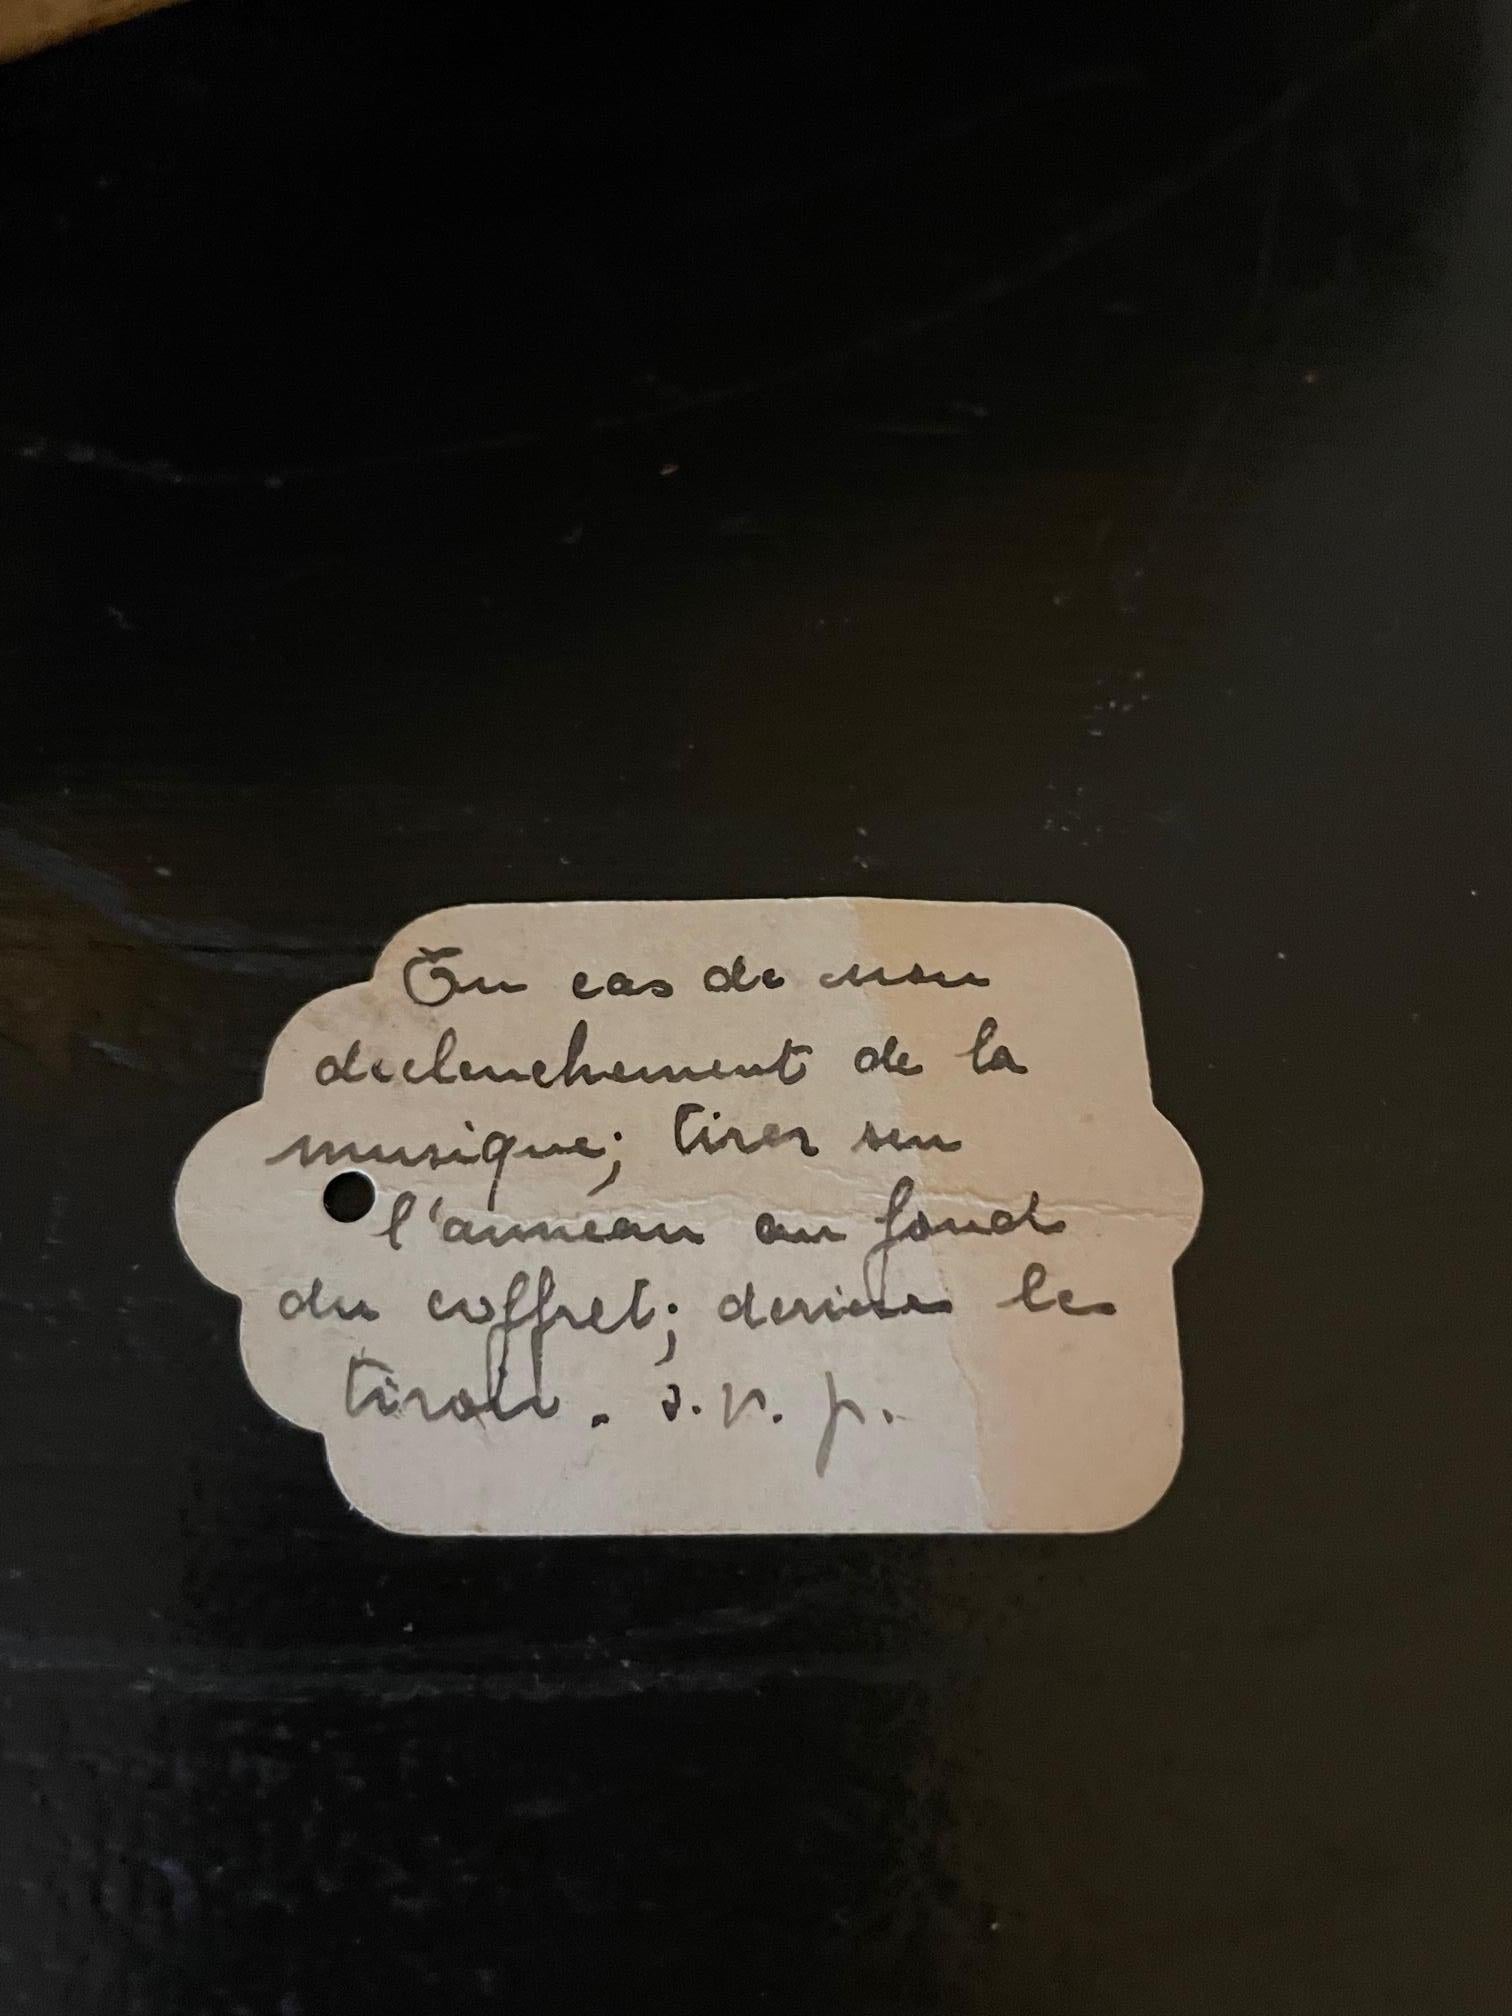 En cas de non
declenchement de la
musique; tirer sur
l'anneau au fond
du coffret; derriere le
tiroir. s.v.p.